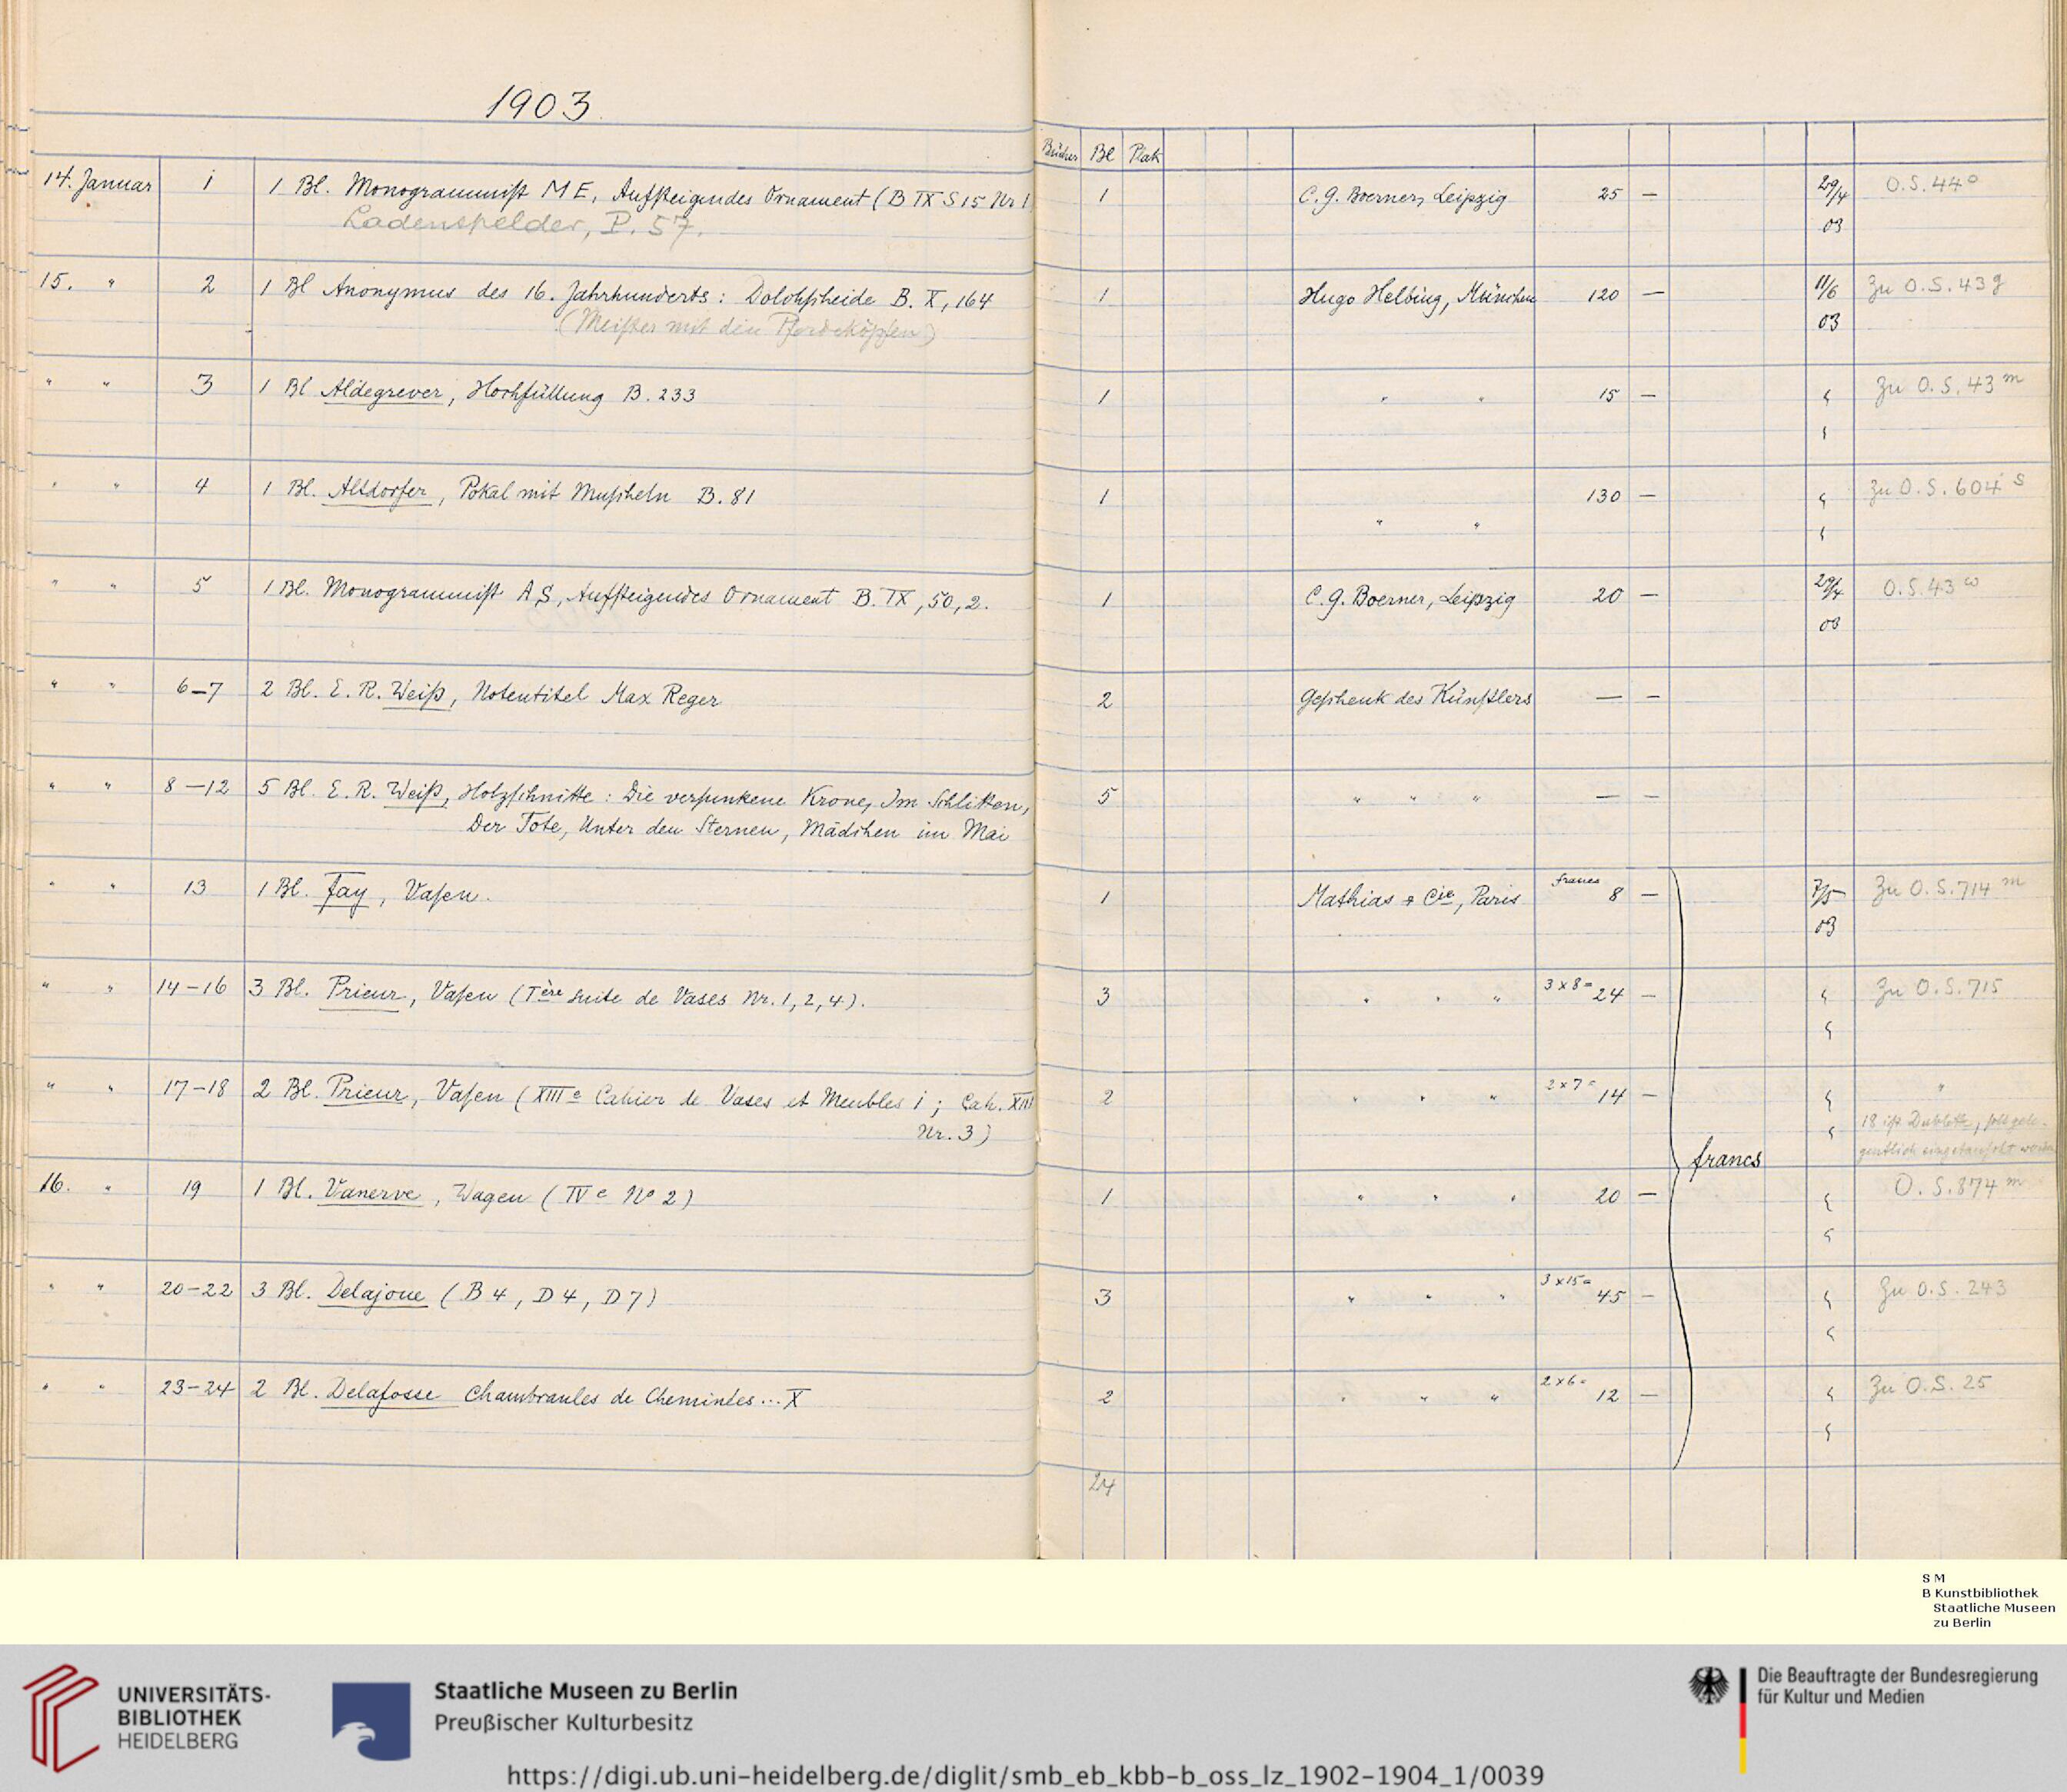 1903
Bücher Bl Plak
14. Januar 1 1 Bl. Monogrammist ME, Aufsteigendes Ornament (B IX S 15 Nr 1 1 C. G. Boerner, Leipzig 25 — 29/4 O.S. 44 o
Ladenspelder, P. 57. 03
15. " 2 1 Bl Anonymus des 16. Jahrhunderts: Dolchscheide B. X, 164 1 Hugo Helbing, München 120 — 11/6 Zu O.S. 43 g
(Meister mit den Pferdeköpfen) 03
" " 3 1 Bl Aldegrever, Hochfüllung B. 233 1 " " 15 — " Zu O.S. 43 m
"
" " 4 1 Bl. Altdorfer, Pokal mit Muscheln B. 81 1 130 — " Zu O.S. 604 s
" " "
" " 5 1 Bl. Monogrammist A.S., Aufsteigendes Ornament B. IX, 50, 2. 1 C. G. Boerner, Leipzig 20 — 29/4 O.S. 43 w
03
" " 6–7 2 Bl. E. R. Weiß, Notentitel Max Reger 2 Geschenk des Künstlers — —
" " 8–12 5 Bl. E. R. Weiß, Holzschnitte: Die versunkene Krone, Im Schlitten, 5 " " " — —
Der Tote, Unter den Sternen, Mädchen im Mai
" " 13 1 Bl. Fay, Vasen. 1 Mathias & Cie, Paris francs 8 — 7/5 Zu O.S. 714 m
03
" " 14–16 3 Bl. Prieur, Vasen (Ière suite de Vases Nr. 1, 2, 4). 3 " " " 3 x 8 = 24 — " Zu O.S. 715
"
" " 17–18 2 Bl. Prieur, Vasen (XIIIe Cahier de Vases et Meubles 1; Cah. XIII 2 " " " 2 x 7 = 14 — " "
Nr. 3) " 18 ist Dublette, soll gele-
francs gentlich eingetauscht werden
16. " 19 1 Bl. Vanerve, Wagen (IVe No 2) 1 " " " 20 — " O.S. 874 m
"
" " 20–22 3 Bl. Delajoue (B 4, D 4, D 7) 3 " " " 3 x 15 = 45 — " Zu O.S. 243
"
" " 23–24 2 Bl. Delafosse Chambranles de Cheminées ... X 2 " " " 2 x 6 = 12 — " Zu O.S. 25
"
24
S M
B Kunstbibliothek
Staatliche Museen
zu Berlin
UNIVERSITÄTS-
BIBLIOTHEK
HEIDELBERG
Staatliche Museen zu Berlin
Preußischer Kulturbesitz
Die Beauftragte der Bundesregierung
für Kultur und Medien
https://digi.ub.uni-heidelberg.de/diglit/smb_eb_kbb-b_oss_lz_1902-1904_1/0039